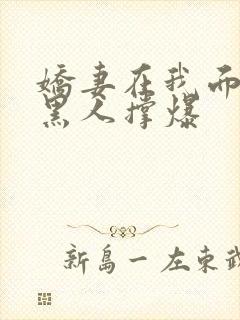 嬌妻在我而
黑人撐爆
新島一左東武